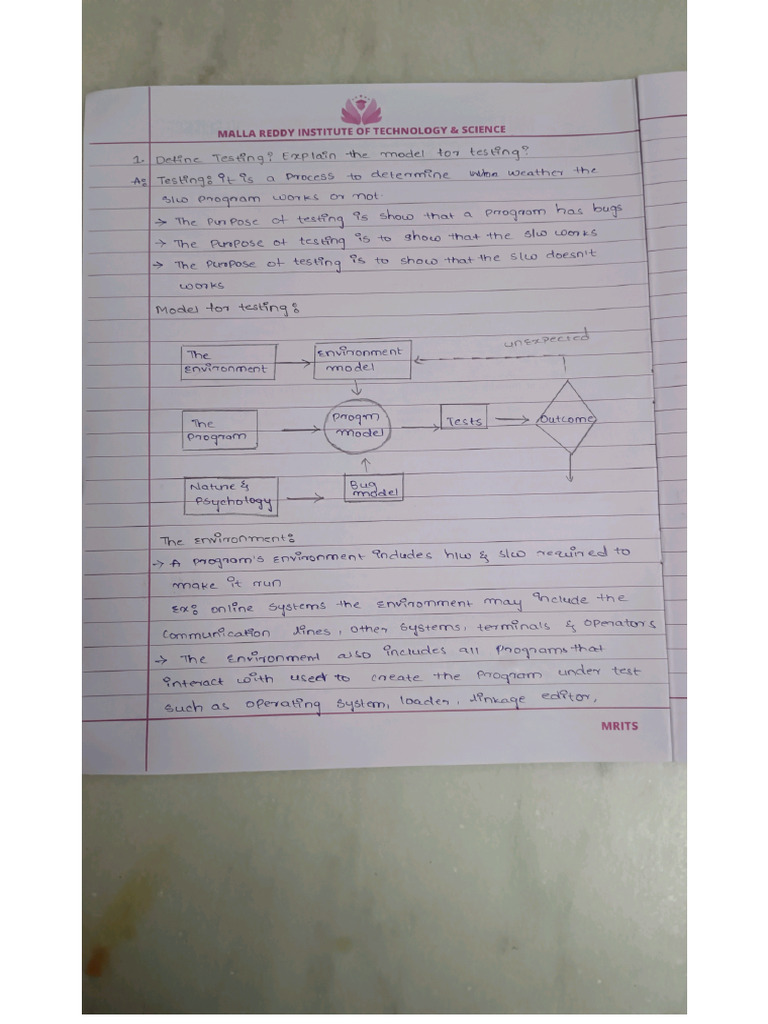 MALLA REDDY INSTITUTE OF TECHNOLOGY & SCIENCE
1. Define Testing? Explain the model for testing?
A: Testing: it is a process to determine weather the
s/w program works or not.
→ The purpose of testing is show that a program has bugs
→ The purpose of testing is to show that the s/w works
→ The purpose of testing is to show that the s/w doesn't
works
Model for testing:
unexpected
The
Environment
Environment
model
The
program
progm
model
Tests
Outcome
Nature &
Psychology
Bug
model
The Environment:
→ A program's Environment includes h/w & s/w required to
make it run
Ex: online systems the Environment may include the
communication lines, other systems, terminals & operators
→ The Environment also includes all programs that
interact with used to create the program under test
such as operating system, loader, linkage editor,
MRITS